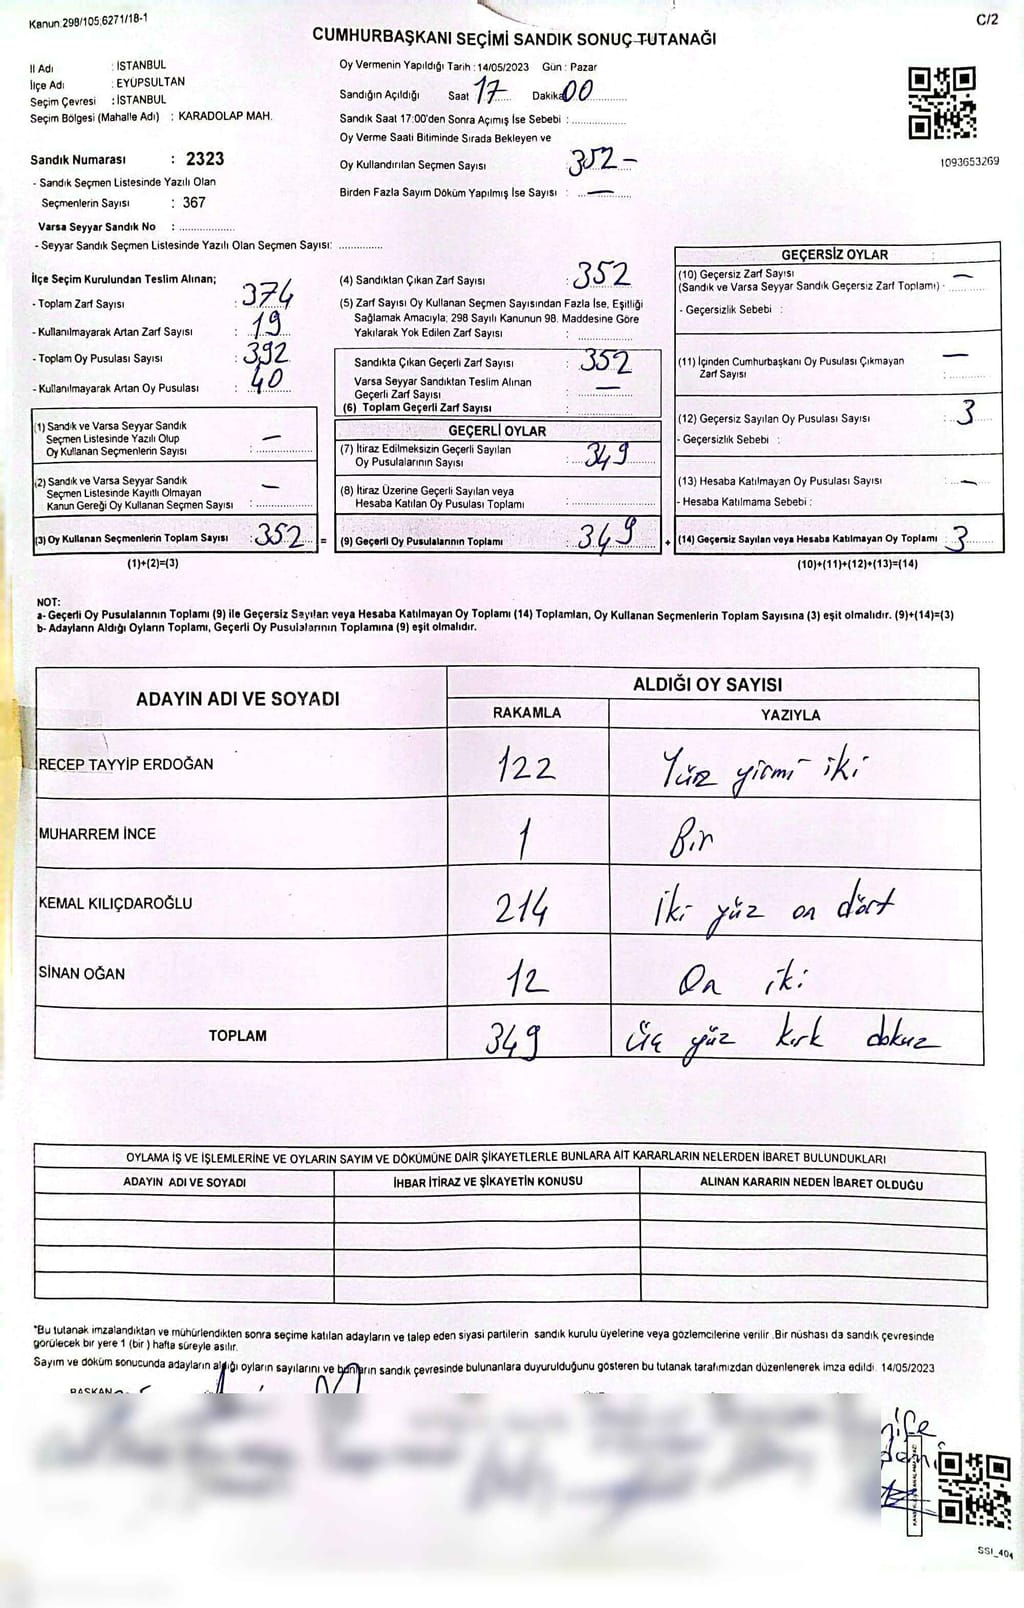 Kanun.298/105,6271/18-1
C/2
CUMHURBAŞKANI SEÇİMİ SANDIK SONUÇ TUTANAĞI
İl Adı : İSTANBUL
İlçe Adı : EYÜPSULTAN
Seçim Çevresi : İSTANBUL
Seçim Bölgesi (Mahalle Adı) : KARADOLAP MAH.
Sandık Numarası : 2323
- Sandık Seçmen Listesinde Yazılı Olan
Seçmenlerin Sayısı : 367
Varsa Seyyar Sandık No : ...................
- Seyyar Sandık Seçmen Listesinde Yazılı Olan Seçmen Sayısı: ...............
Oy Vermenin Yapıldığı Tarih : 14/05/2023 Gün : Pazar
Sandığın Açıldığı Saat 17 Dakika 00
Sandık Saat 17:00'den Sonra Açımış İse Sebebi : ...................
Oy Verme Saati Bitiminde Sırada Bekleyen ve
Oy Kullandırılan Seçmen Sayısı 352 -
Birden Fazla Sayım Döküm Yapılmış İse Sayısı : —
1093653269
İlçe Seçim Kurulundan Teslim Alınan;
- Toplam Zarf Sayısı : 374
- Kullanılmayarak Artan Zarf Sayısı : 19
- Toplam Oy Pusulası Sayısı : 392
- Kullanılmayarak Artan Oy Pusulası : 40
(1) Sandık ve Varsa Seyyar Sandık
Seçmen Listesinde Yazılı Olup
Oy Kullanan Seçmenlerin Sayısı : —
(2) Sandık ve Varsa Seyyar Sandık
Seçmen Listesinde Kayıtlı Olmayan
Kanun Gereği Oy Kullanan Seçmen Sayısı : —
(3) Oy Kullanan Seçmenlerin Toplam Sayısı : 352 =
(1)+(2)=(3)
(4) Sandıktan Çıkan Zarf Sayısı : 352
(5) Zarf Sayısı Oy Kullanan Seçmen Sayısından Fazla İse, Eşitliği
Sağlamak Amacıyla; 298 Sayılı Kanunun 98. Maddesine Göre
Yakılarak Yok Edilen Zarf Sayısı :
Sandıkta Çıkan Geçerli Zarf Sayısı : 352
Varsa Seyyar Sandıktan Teslim Alınan
Geçerli Zarf Sayısı : —
(6) Toplam Geçerli Zarf Sayısı :
GEÇERLİ OYLAR
(7) İtiraz Edilmeksizin Geçerli Sayılan
Oy Pusulalarının Sayısı : 349
(8) İtiraz Üzerine Geçerli Sayılan veya
Hesaba Katılan Oy Pusulası Toplamı :
(9) Geçerli Oy Pusulalarının Toplamı : 349 +
GEÇERSİZ OYLAR
(10) Geçersiz Zarf Sayısı —
(Sandık ve Varsa Seyyar Sandık Geçersiz Zarf Toplamı) :
- Geçersizlik Sebebi :
(11) İçinden Cumhurbaşkanı Oy Pusulası Çıkmayan —
Zarf Sayısı :
(12) Geçersiz Sayılan Oy Pusulası Sayısı : 3
- Geçersizlik Sebebi :
(13) Hesaba Katılmayan Oy Pusulası Sayısı : —
- Hesaba Katılmama Sebebi :
(14) Geçersiz Sayılan veya Hesaba Katılmayan Oy Toplamı : 3
(10)+(11)+(12)+(13)=(14)
NOT:
a- Geçerli Oy Pusulalarının Toplamı (9) ile Geçersiz Sayılan veya Hesaba Katılmayan Oy Toplamı (14) Toplamları, Oy Kullanan Seçmenlerin Toplam Sayısına (3) eşit olmalıdır. (9)+(14)=(3)
b- Adayların Aldığı Oyların Toplamı, Geçerli Oy Pusulalarının Toplamına (9) eşit olmalıdır.
ADAYIN ADI VE SOYADI ALDIĞI OY SAYISI
RAKAMLA YAZIYLA
RECEP TAYYİP ERDOĞAN 122 Yüz yirmi iki
MUHARREM İNCE 1 Bir
KEMAL KILIÇDAROĞLU 214 İki yüz on dört
SİNAN OĞAN 12 On iki
TOPLAM 349 üç yüz kırk dokuz
OYLAMA İŞ VE İŞLEMLERİNE VE OYLARIN SAYIM VE DÖKÜMÜNE DAİR ŞİKAYETLERLE BUNLARA AİT KARARLARIN NELERDEN İBARET BULUNDUKLARI
ADAYIN ADI VE SOYADI İHBAR İTİRAZ VE ŞİKAYETİN KONUSU ALINAN KARARIN NEDEN İBARET OLDUĞU
*Bu tutanak imzalandıktan ve mühürlendikten sonra seçime katılan adayların ve talep eden siyasi partilerin sandık kurulu üyelerine veya gözlemcilerine verilir .Bir nüshası da sandık çevresinde
görülecek bir yere 1 (bir ) hafta süreyle asılır.
Sayım ve döküm sonucunda adayların aldığı oyların sayılarını ve bunların sandık çevresinde bulunanlara duyurulduğunu gösteren bu tutanak tarafımızdan düzenlenerek imza edildi. 14/05/2023
BAŞKAN
SSI_404